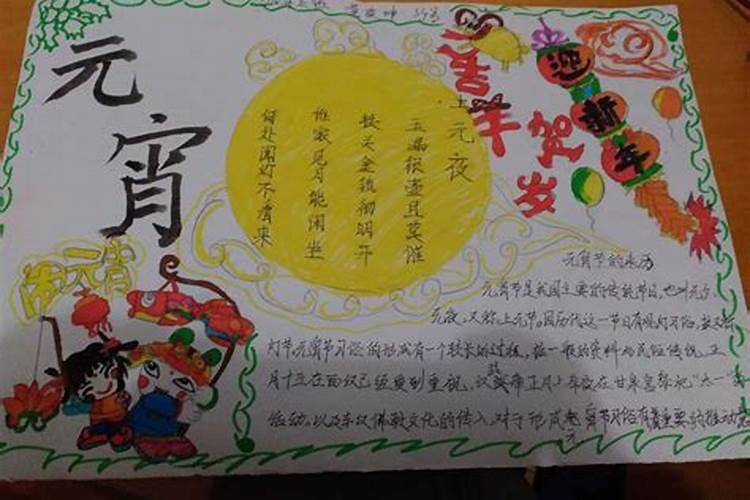 元
宵
闹元宵
喜
羊
贺
岁
迎
新
年
上元夜
玉漏银壶且莫催
铁关金锁彻明开
谁家见月能闲坐
何处闻灯不看来
元宵节的来历
元宵节是我国主要的传统节日,也叫元夕、
元夜,又称上元节。因历代这一节日有观灯习俗,故又称
灯节。元宵节习俗的形成有一个较长的过程,据一般的资料与民俗传说,正
月十五在西汉已经受到重视,汉武帝正月上辛夜在甘泉宫祭祀"太一"
活动。以及东汉佛教文化的传入,对于形成元宵节习俗有着重要的推动意